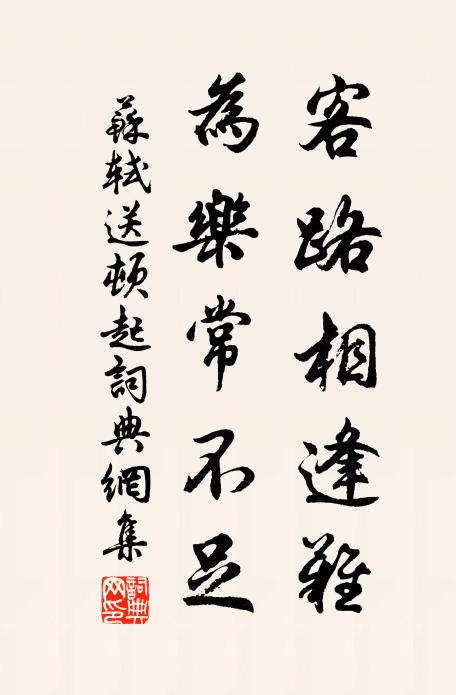 客路相逢難
為樂常不足
蘇軾送頓起詞典網集
詞典网印